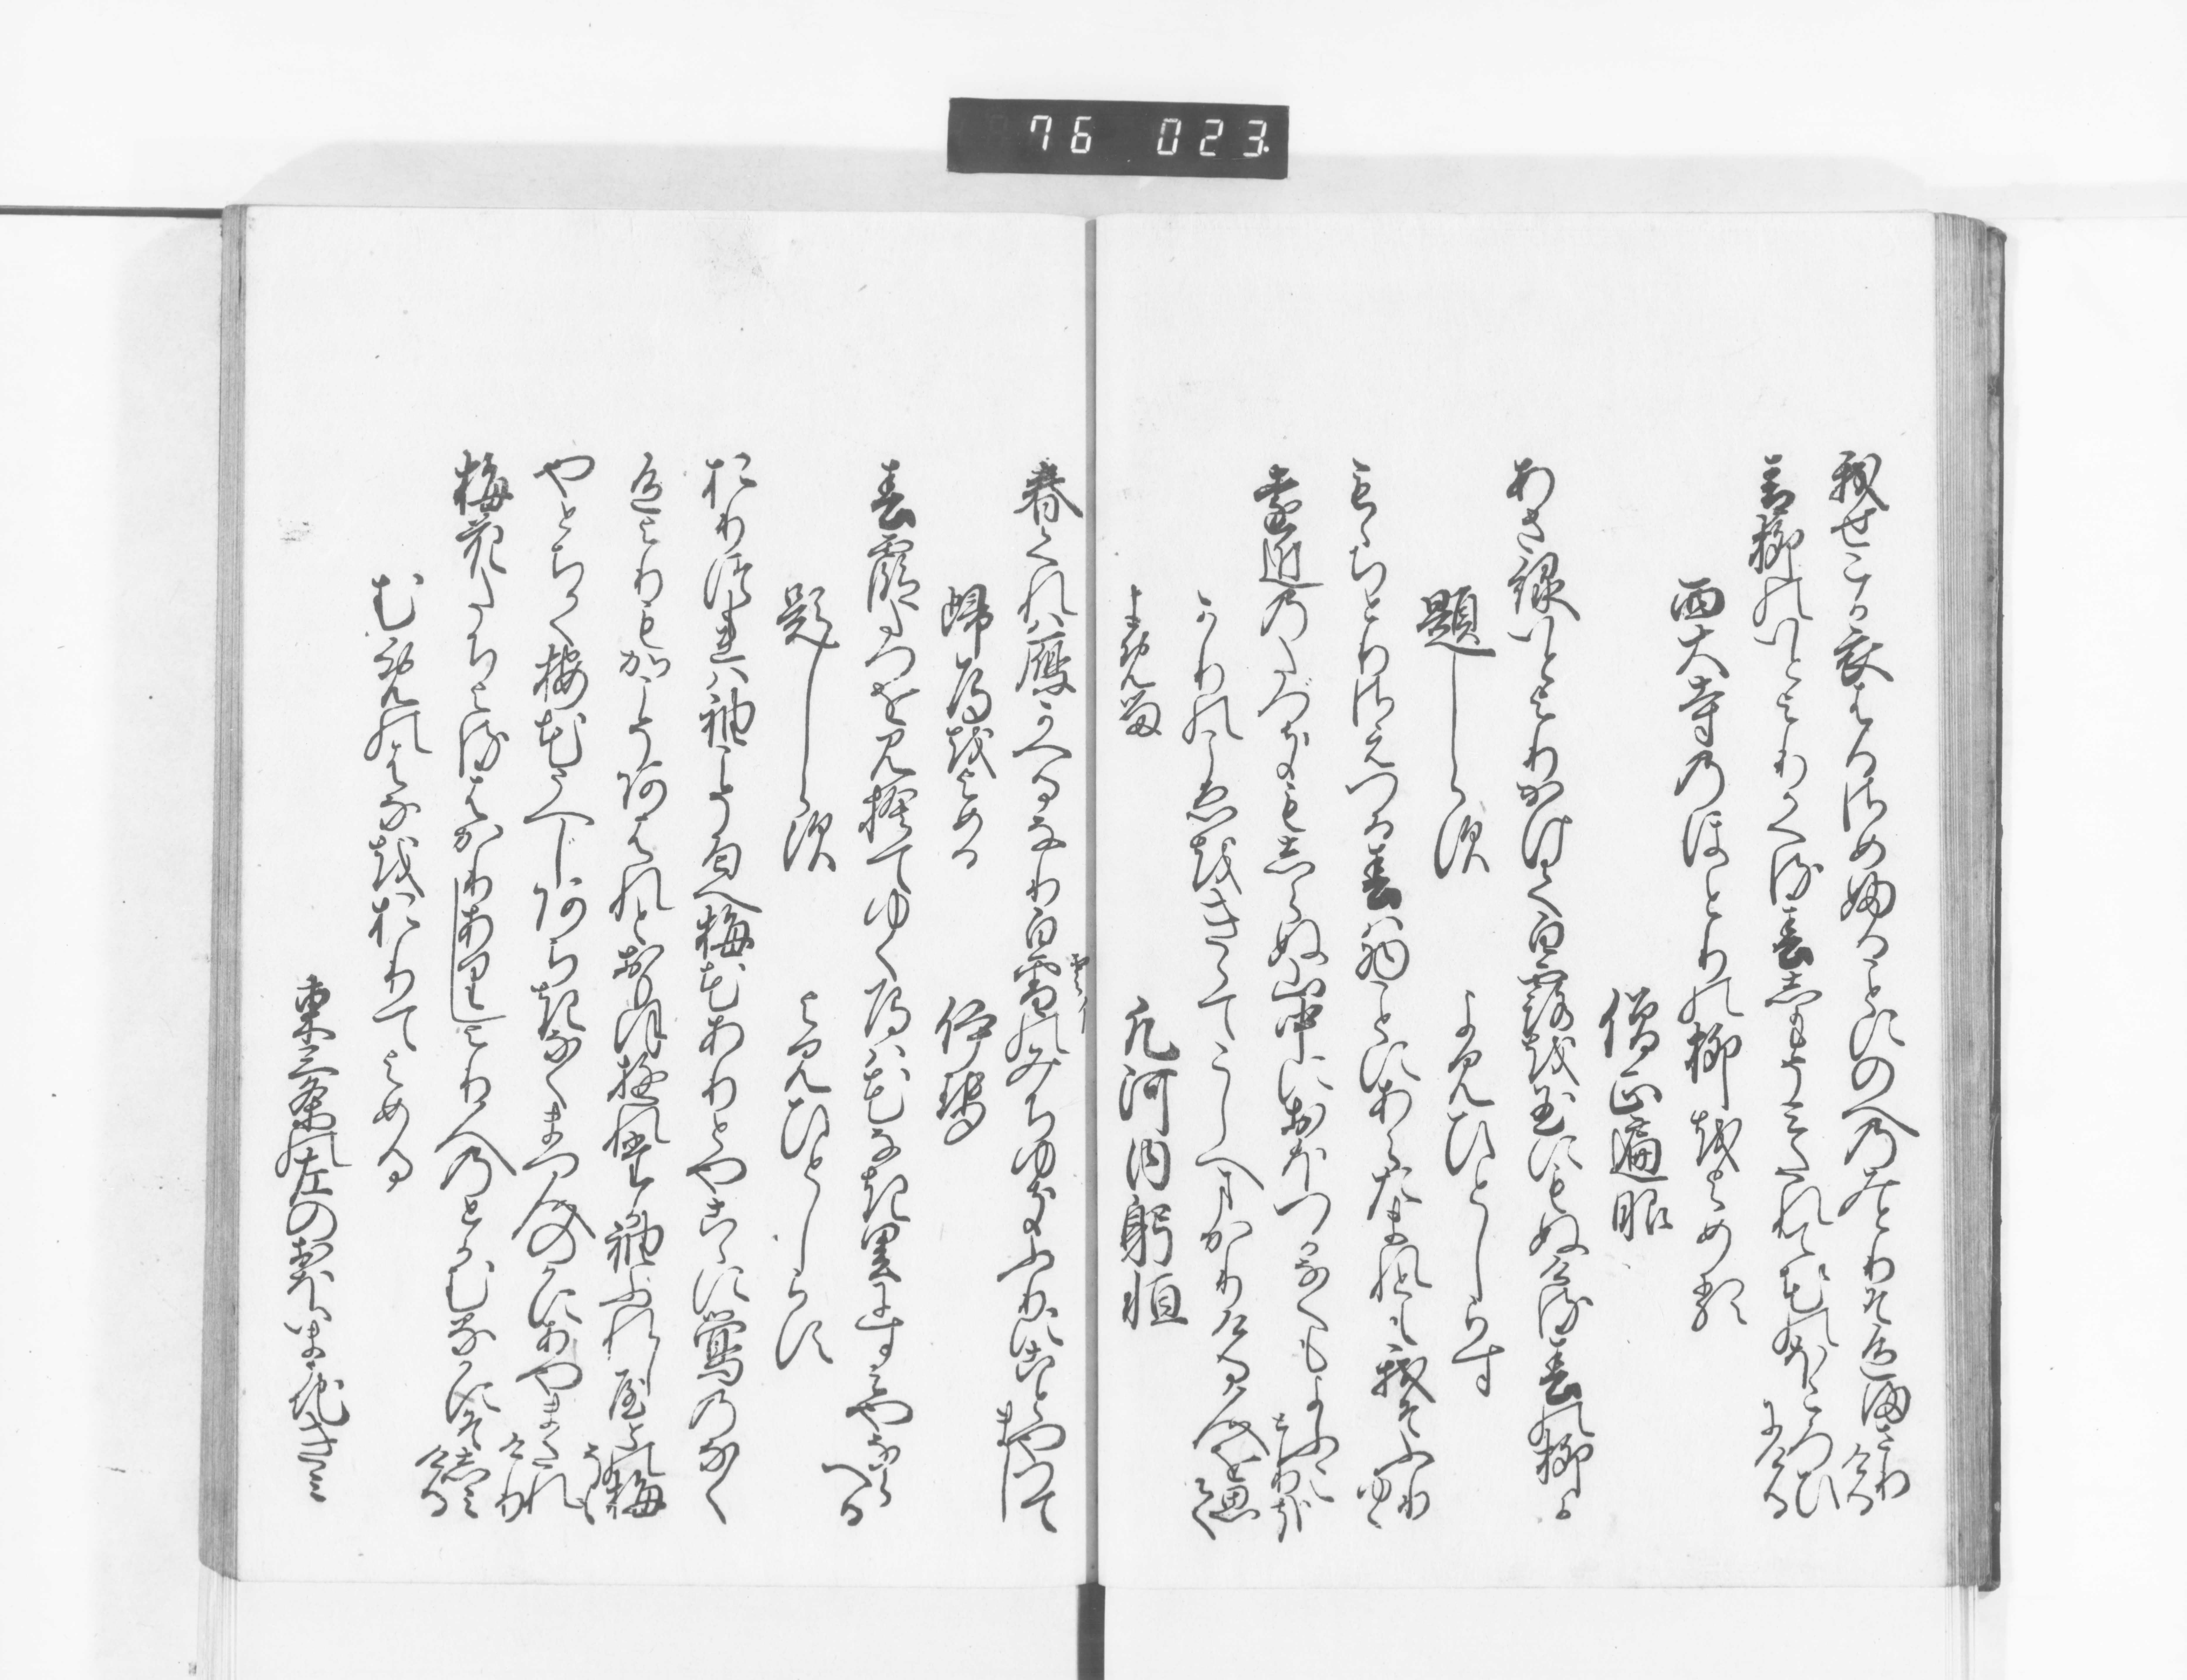 76 023
我せこか衣はるさめふることにのへのみとりそ色まさりける
青柳のいとよりかくる春しもそみたれて花のほころひにける
西大寺のほとりの柳をよめる
僧正遍昭
あさ緑いとよりかけて白露を玉にもぬける春の柳か
題しらす
よみひとしらす
もゝちとりさえつる春は物ことにあらたまれとも我そふりゆく
遠近のたつきもしらぬ山中におほつかなくもよふことりかな
かりのこゑをきゝてこしへまかりける人を思ひて
よめる
凡河内躬恒
春くれは雁かへるなり白雲のみちゆきふりにことやつてまし
帰鴈をよめる
伊勢
春霞たつを見捨てゆく鴈は花なき里にすみやならへる
題しらす
よみひとしらす
おりつれは袖こそ匂へ梅花ありとやこゝに鶯のなく
色よりもかこそあはれとおもほゆれ誰か袖ふれし屋との梅そも
やとちかく梅花うへしあちきなくまつ人のかにあやまたれけり
梅花たちよるはかりありしより人のとかむるかにそしみける
むめの花をおりてよめる
東三条の左のおほいまうちきみ